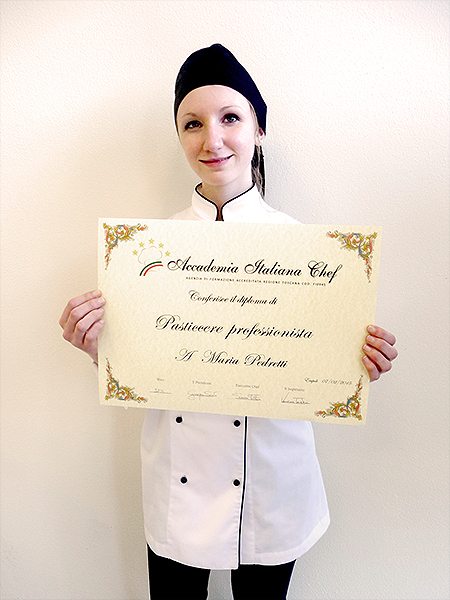 Accademia Italiana Chef
AGENZIA DI FORMAZIONE ACCREDITATA REGIONE TOSCANA COD.
Conferisce il diploma di
Pasticcere professionista
A Maria Pedretti
Empoli 02/02/2015
Il Presidente Executive Chef Il Segretario